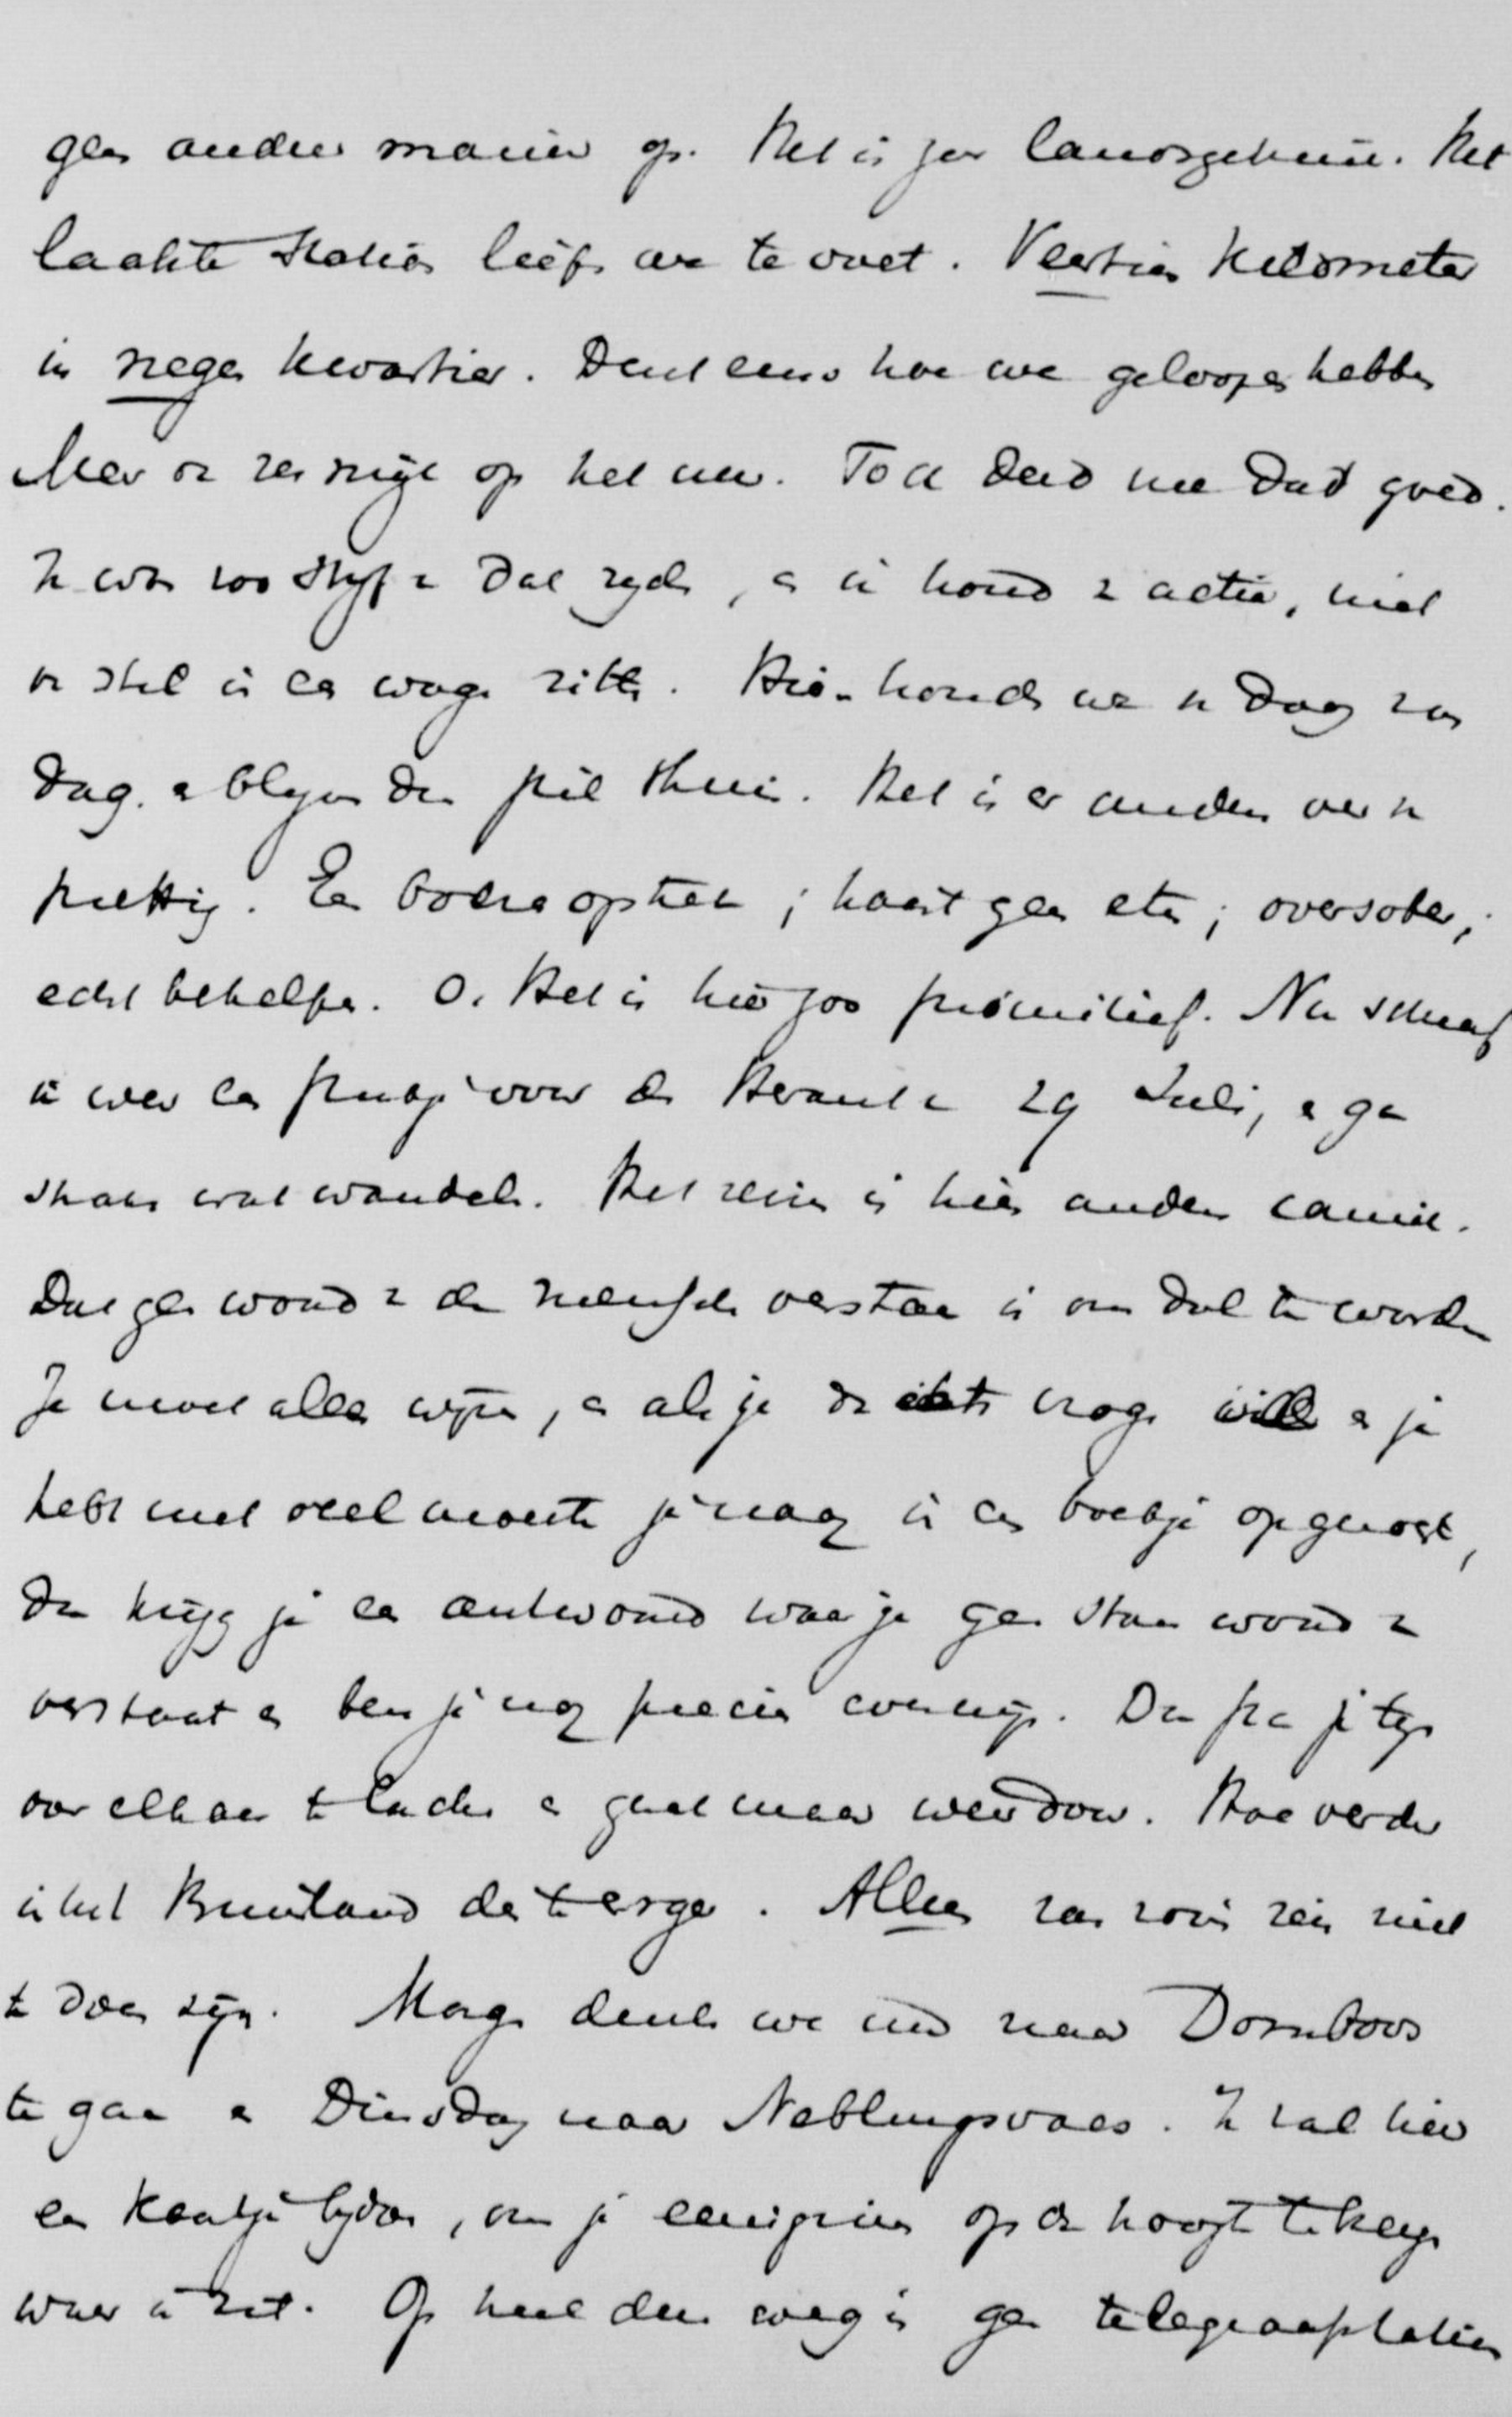 geen andere manier op. Het is zoo landsgebruik. Het
laatste station liepen we te voet. Veertien kilometer
in negen kwartier. Denk eens hoe we geloopen hebben
Meer dan zes mijl op het uur. Toch deed me dat goed.
Ik was zoo stijf van dat rijden, en ik houd van actie, niet
om stil in een wagen zitten. Hier houden we een dag van
dag en blijven dan stil thuis. Het is er anders niet
prettig. Een boerenoptrek; haast geen eten; oversober;
echt behelpen. O. Het is hier zoo primitief. Nu schreef
ik weer een stukje voor de Heraut van 29 Juli, en ga
straks wat wandelen. Het reizen is hier anders curieus.
Dat geen woord van de menschen verstaan is om dol te worden
Je moet alles wijzen, en als je dan iets vragen wilt en je
hebt met veel moeite je vraag in een boekje opgezocht,
dan krijg je een antwoord waar je geen stom woord van
verstaat en ben je nog precies even wijs. Dan sta je tegen
over elkaar te lachen en gaat maar weer door. Hoe verder
in het Binnenland des te erger. Alleen zou zoo'n reis niet
te doen zijn. Morgen denken we met naar Dornboos
te gaan en Dinsdag naar Neblingsvaes. Ik zal hier
een kaartje bijdoen, om je eenigszins op de hoogte te brengen
waar ik zit. Op heel den weg is geen telegraafstation